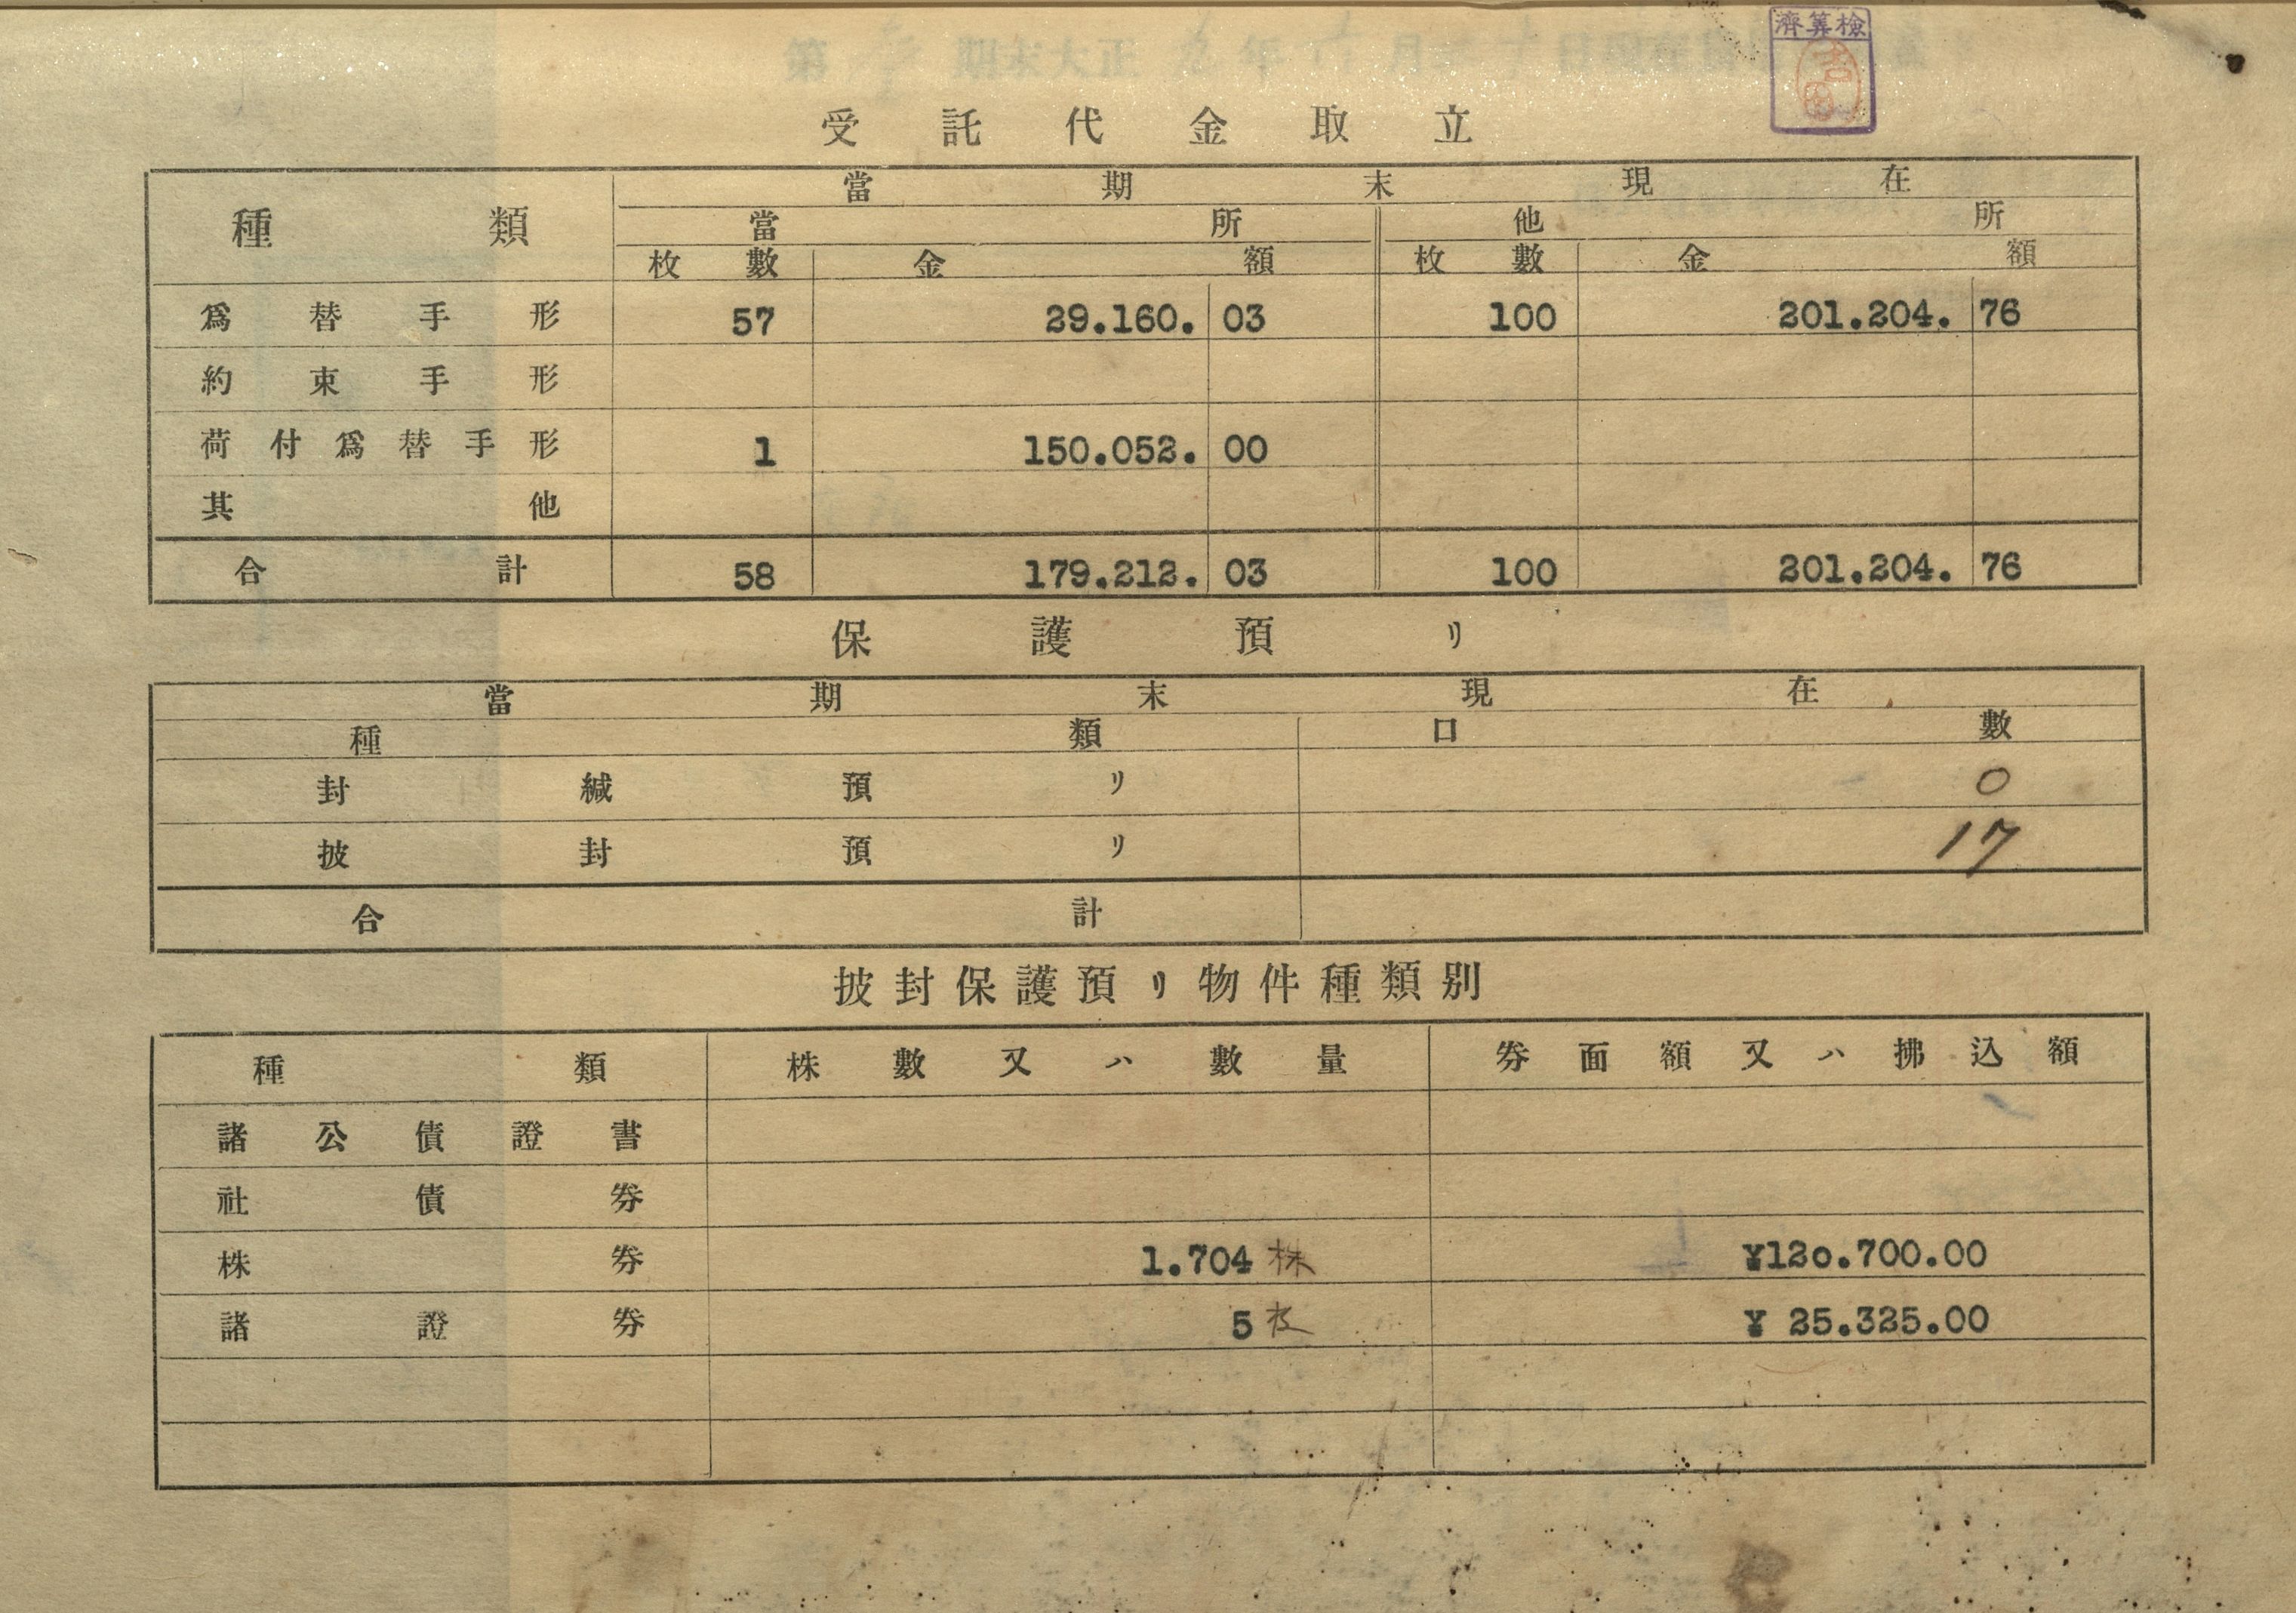 檢算濟
受託代金取立
種類 當期末現在
當所 他所
枚數 金額 枚數 金額
爲替手形 57 29.160. 03 100 201.204. 76
約束手形
荷付爲替手形 1 150.052. 00
其他
合計 58 179.212. 03 100 201.204. 76
保護預リ
當期末現在
種類 口數
封緘預リ 0
披封預リ 17
合計
披封保護預リ物件種類別
種類 株數又ハ數量 券面額又ハ拂込額
諸公債證書
社債券
株券 1.704 株 ¥120.700.00
諸證券 5 枚 ¥ 25.325.00